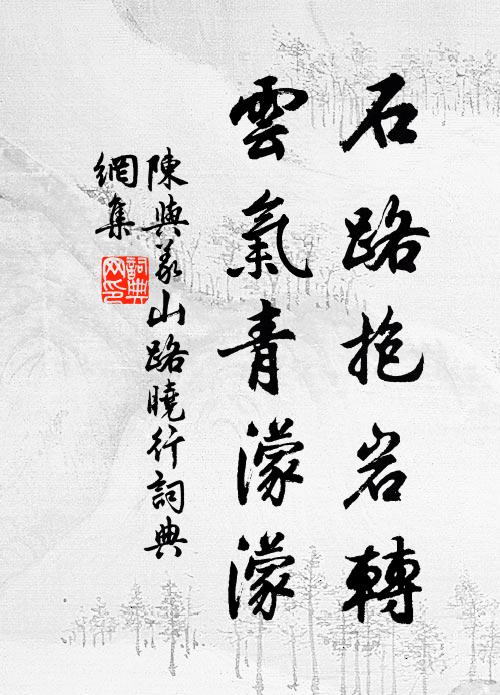 石路抱岩轉
雲氣青濛濛
陳與義山路曉行詞典
網集
詞典
网印